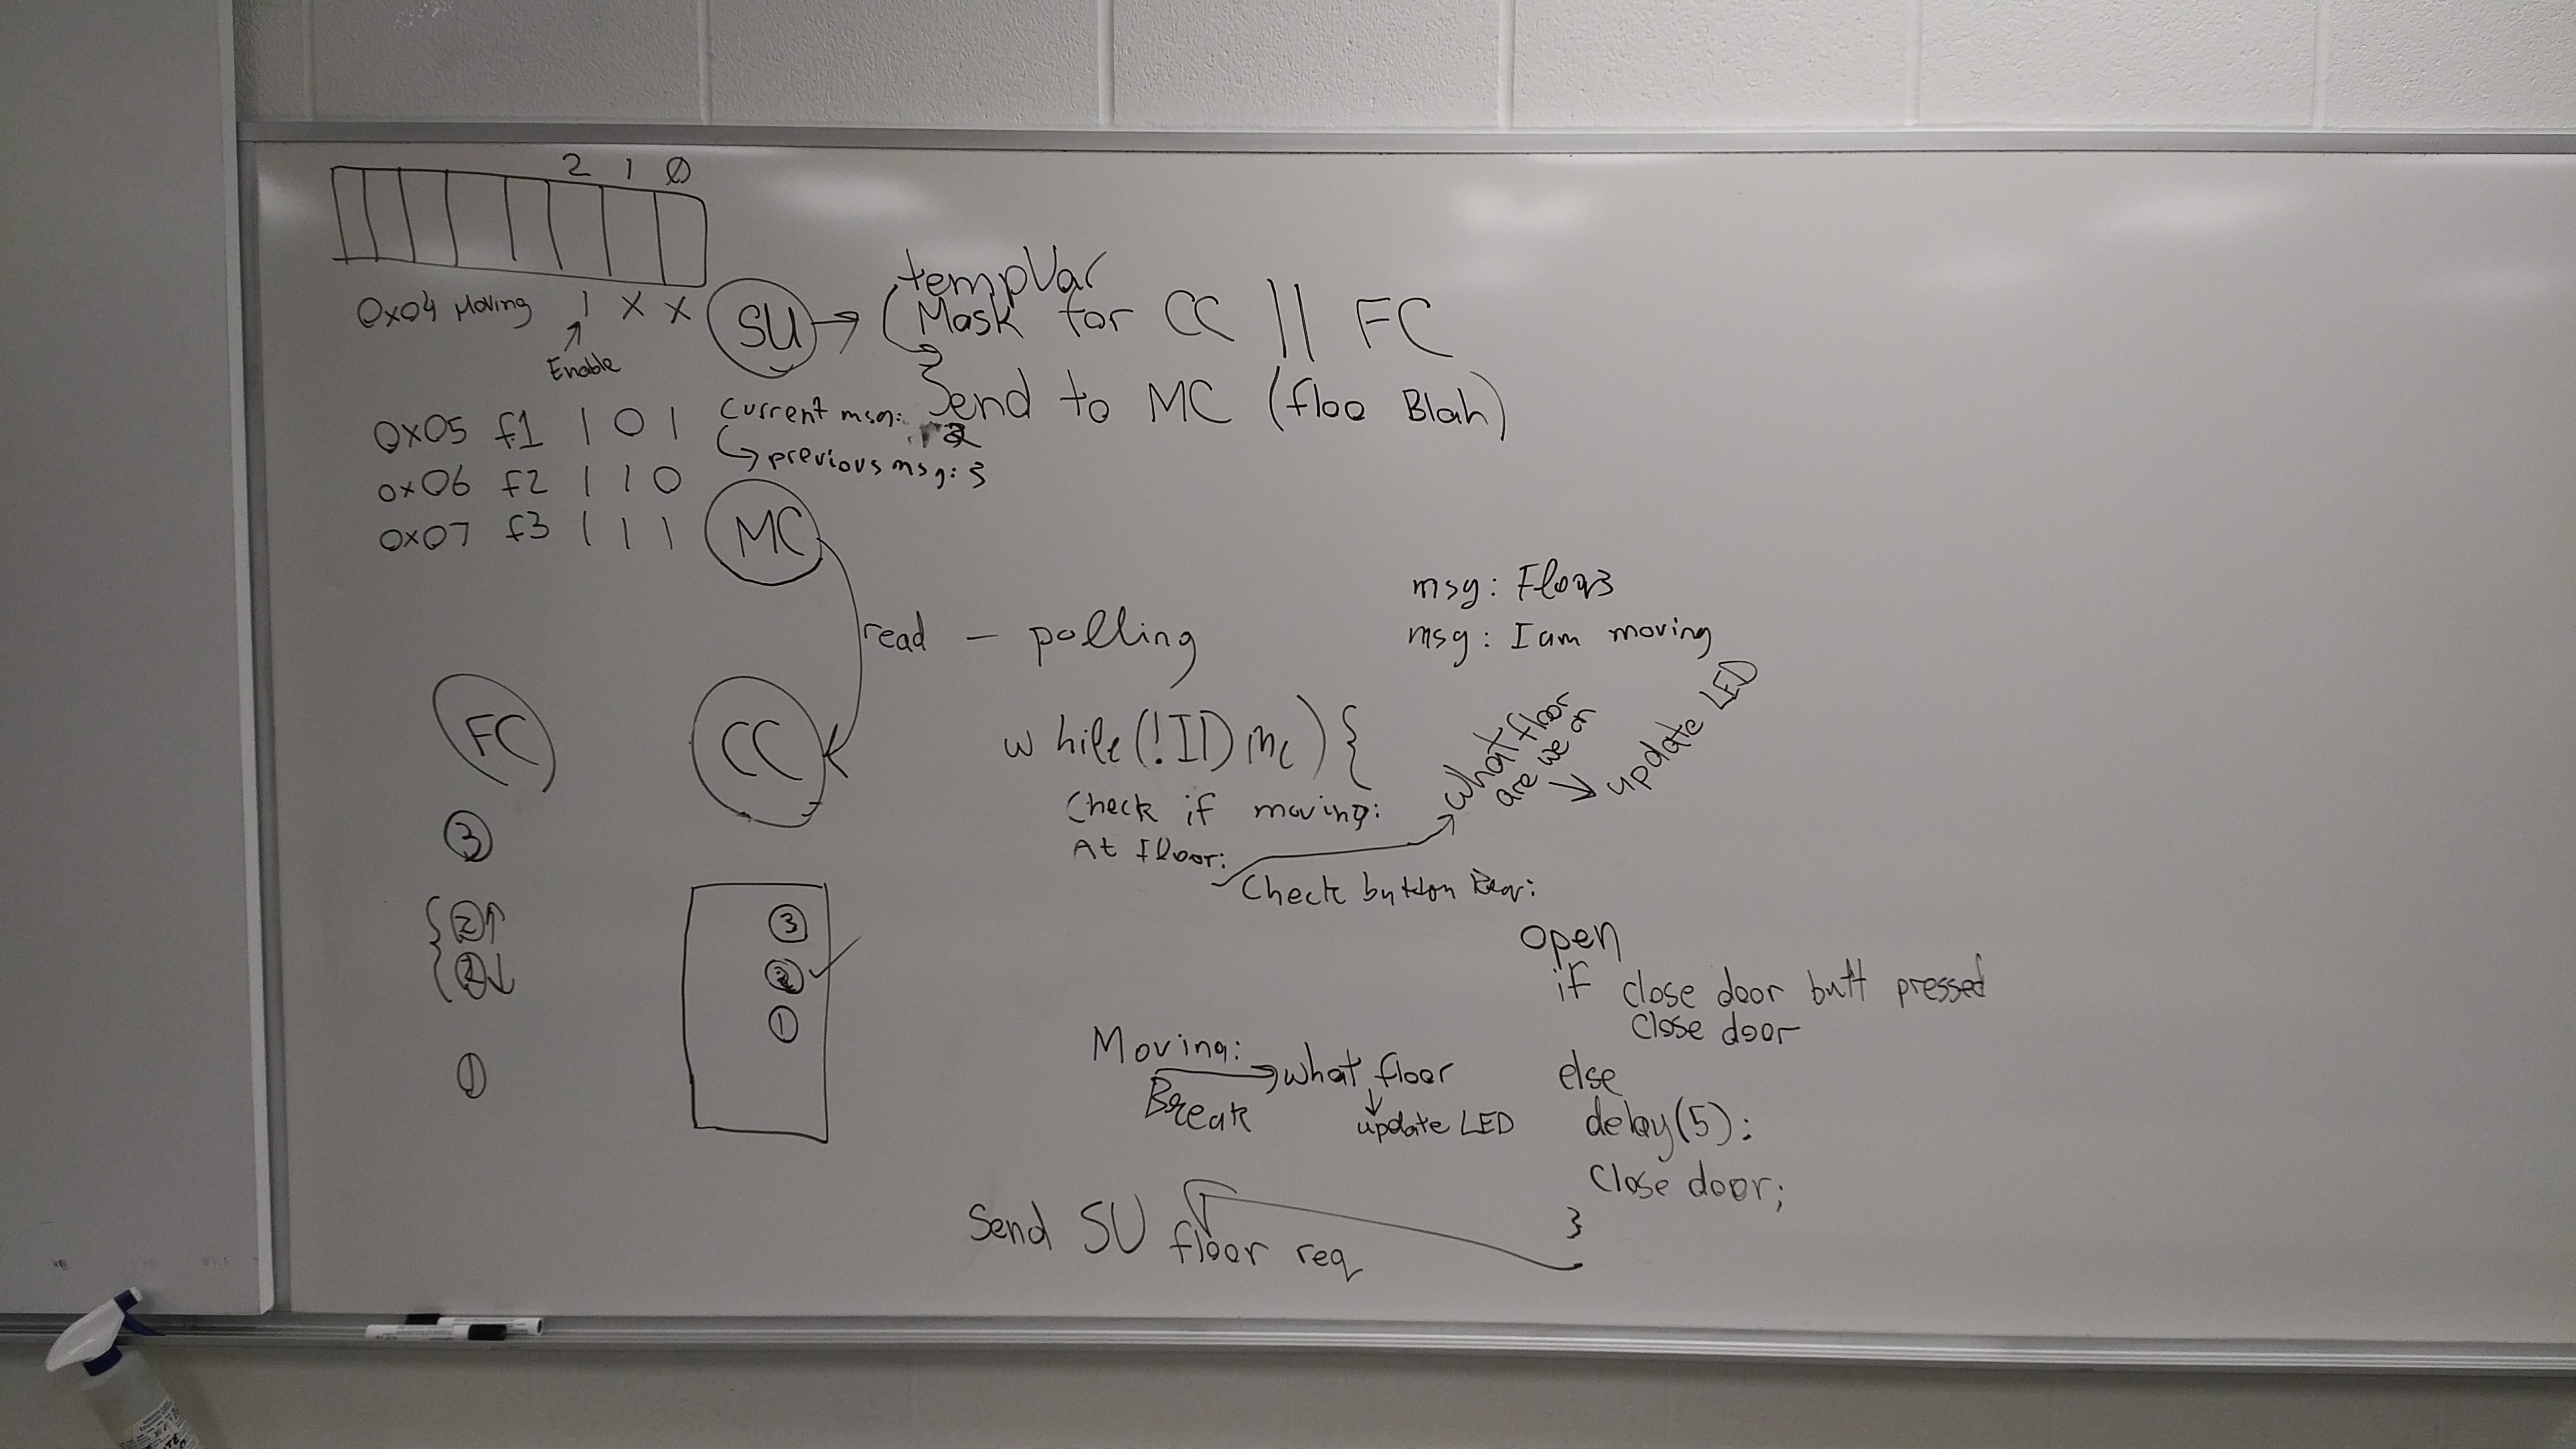 2 1 0
0x04 Moving 1 X X
Enable
0x05 f1 1 0 1
0x06 f2 1 1 0
0x07 f3 1 1 1
SU
tempVar
Mask for CC || FC
Send to MC (floo Blah)
Current msg: 2
previous msg: 3
MC
read - polling
msg: Floor3
msg: I am moving
FC
CC
while(!ID mc) {
Check if moving:
At Floor:
what floor
are we on
update LED
Check button Req:
3
2↑
2↓
1
3
2
1
open
if close door butt pressed
close door
else
delay(5):
Close door;
}
Moving:
Break
what floor
update LED
Send SU floor req